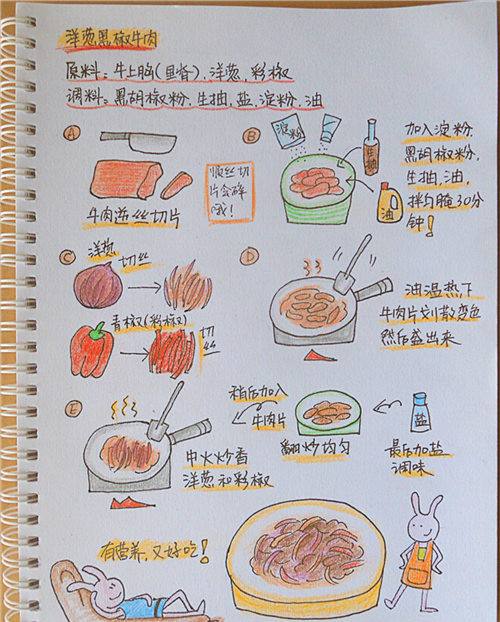 洋葱黑椒牛肉
原料：牛上脑(里脊)，洋葱，彩椒
调料：黑胡椒粉，生抽，盐，淀粉，油
A
牛肉逆丝切片
顺丝切
片会碎
哦！
B
淀粉
生抽
油
加入淀粉，
黑胡椒粉，
生抽，油，
拌匀腌30分
钟！
C
洋葱
切丝
青椒(彩椒)
切丝
D
油温热下
牛肉片划散变色
然后盛出来
E
中火炒香
洋葱和彩椒
稍后加入
牛肉片
翻炒均匀
盐
最后加盐
调味
有营养，又好吃！